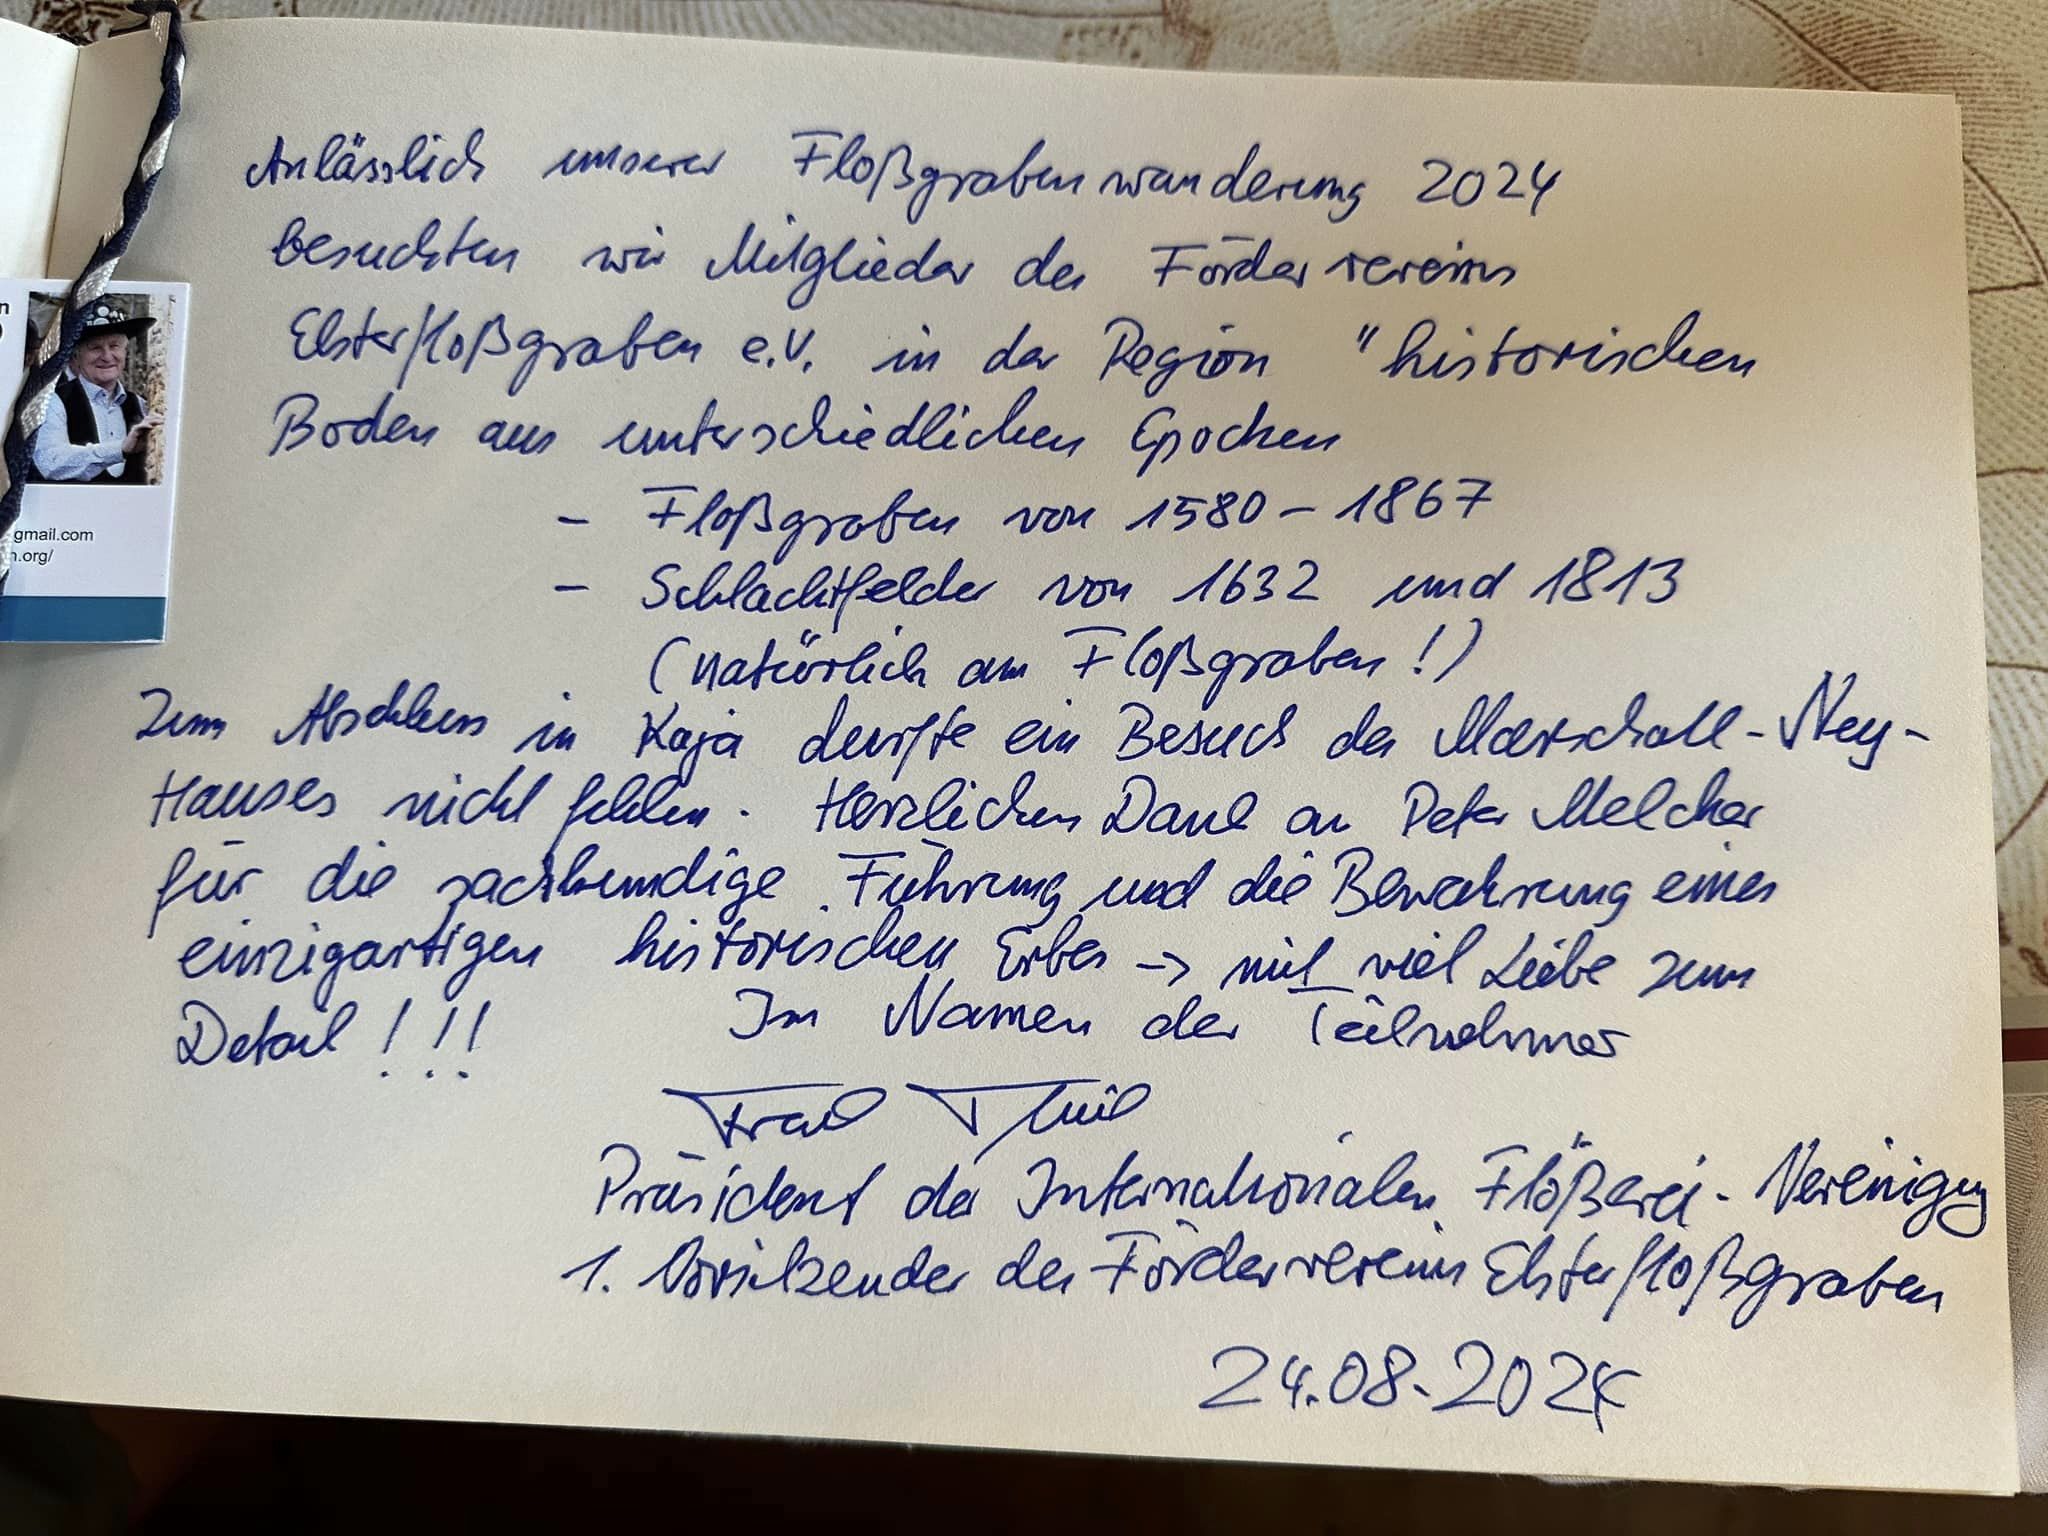 Anlässlich unserer Floßgrabenwanderung 2024
besuchten wir Mitglieder des Fördervereins
Elsterfloßgraben e.V. in der Region "historischen
Boden aus unterschiedlichen Epochen
- Floßgraben von 1580 - 1867
- Schlachtfelder von 1632 und 1813
(natürlich am Floßgraben!)
Zum Abschluss in Kaja durfte ein Besuch des Marschall-Ney-
Hauses nicht fehlen. Herzlichen Dank an Peter Melcher
für die sachkundige Führung und die Bewahrung eines
einzigartigen historischen Erbes -> mit viel Liebe zum
Detail!!!
Im Namen der Teilnehmer
Frank Thiel
Präsident der Internationalen Flößerei-Vereinigung
1. Vorsitzender des Fördervereins Elsterfloßgraben
24.08.2024
gmail.com
n.org/